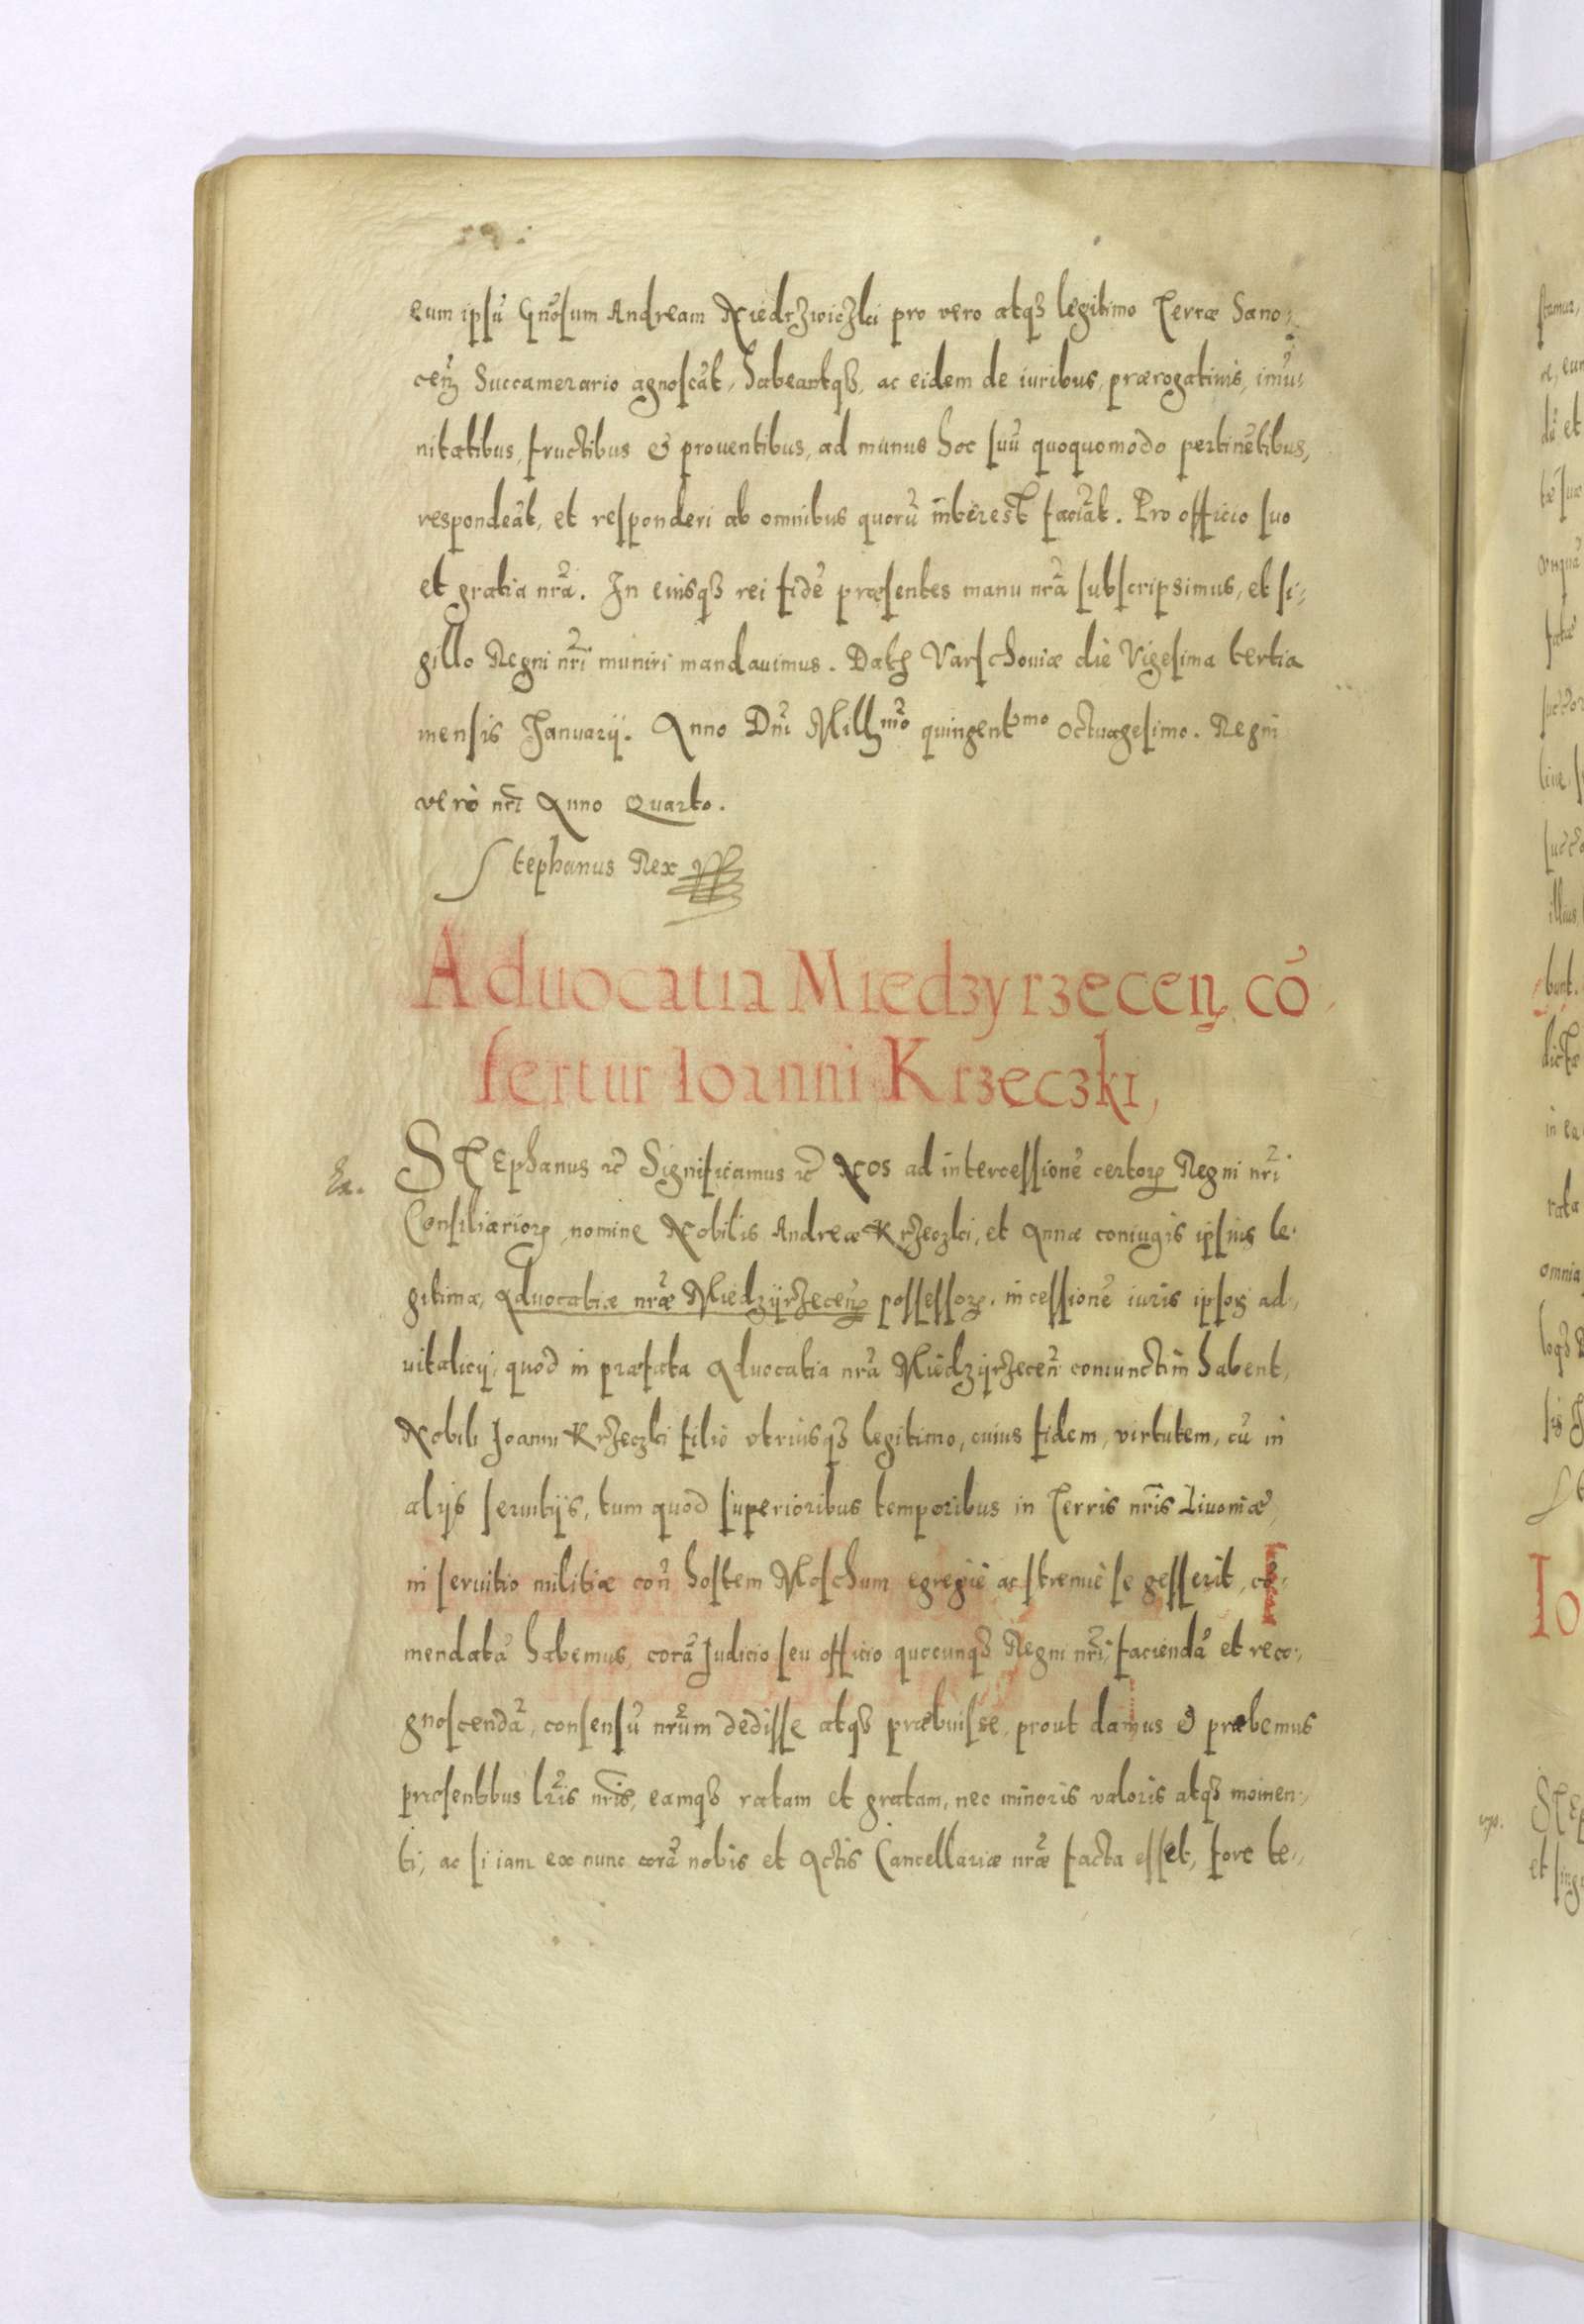 eum ipsū Gnōsum Andream Niedrzwiczki pro vero atqꝫ legitimo Terræ Sano⸗
ceñ Succamerario agnoscāt, habeantqꝫ, ac eidem de iuribus, prærogatiuis, imū⸗
nitatibus, fructibus & prouentibus, ad munus hoc suū quoquomodo pertinētibus,
respondeāt, et responderi ab omnibus quorū interest faciāt. Pro officio suo
et gratia nrā. In eiusqꝫ rei fidē præsentes manu nrā subscripsimus, et si⸗
gillo Regni nrī muniri mandauimus. Datꝭ Varschouiæ die Vigesima tertia
mensis Januarij. Anno Dnī Millmō quingentmo octuagesimo. Regni
verò nrī Anno Quarto.
Stephanus Rex
Aduocatia Miedzyrzeceñ cō⸗
fertur Ioanni Krzeczki,
STEphanus etc Significamus etc Nos ad intercessionē certorꝝ Regni nrī
Consiliariorꝝ, nomine Nobilis Andreæ Krzeczki, et Annæ coniugis ipsius le⸗
gitimæ, Aduocatiæ nrǣ Miedzijrzeceñ possessorꝝ, in cessionē iuris ipsorꝝ ad⸗
uitalicij, quod in præfata Aduocatia nrā Miedzijrzeceñ coniunctim habent,
Nobili Joanni Krzeczki filio vtriusqꝫ legitimo, cuius fidem, virtutem, cū in
alijs seruitijs, tum quod superioribus temporibus in Terris nrīs Liuoniæ,
in seruitio militiæ coñ hostem Moschum egregiè ac strenuè se gesserit, cō⸗
mendatā habemus, corā Judicio seu officio quocunqꝫ Regni nrī, faciendā et reco⸗
gnoscendā, consensū nrūm dedisse atqꝫ præbuisse, prout damus & præbemus
præsentibus lrīs nrīs, eamqꝫ ratam et gratam, nec minoris valoris atqꝫ momen⸗
ti, ac si iam ex nunc corā nobis et Actis Cancellariæ nrǣ facta esset, fore te⸗